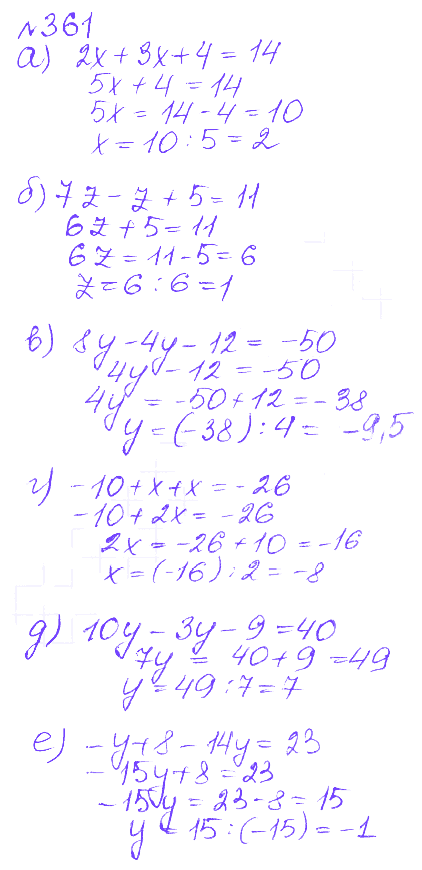 №361
а) 2x + 3x + 4 = 14
5x + 4 = 14
5x = 14 - 4 = 10
x = 10 : 5 = 2
б) 7z - z + 5 = 11
6z + 5 = 11
6z = 11 - 5 = 6
z = 6 : 6 = 1
в) 8y - 4y - 12 = -50
4y - 12 = -50
4y = -50 + 12 = -38
y = (-38) : 4 = -9,5
г) -10 + x + x = -26
-10 + 2x = -26
2x = -26 + 10 = -16
x = (-16) : 2 = -8
д) 10y - 3y - 9 = 40
7y = 40 + 9 = 49
y = 49 : 7 = 7
е) -y + 8 - 14y = 23
-15y + 8 = 23
-15y = 23 - 8 = 15
y = 15 : (-15) = -1